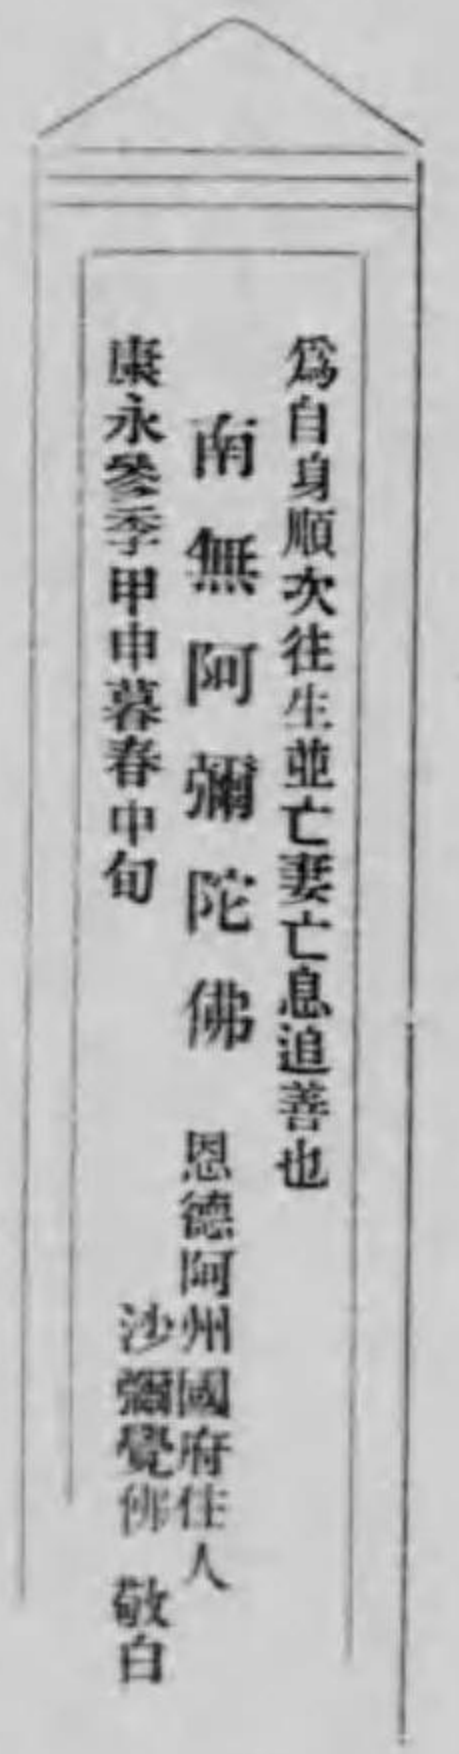 爲自身順次往生並亡妻亡息追善也
南無阿彌陀佛
恩德阿州國府住人
沙彌覺佛 敬白
康永參季甲申暮春中旬